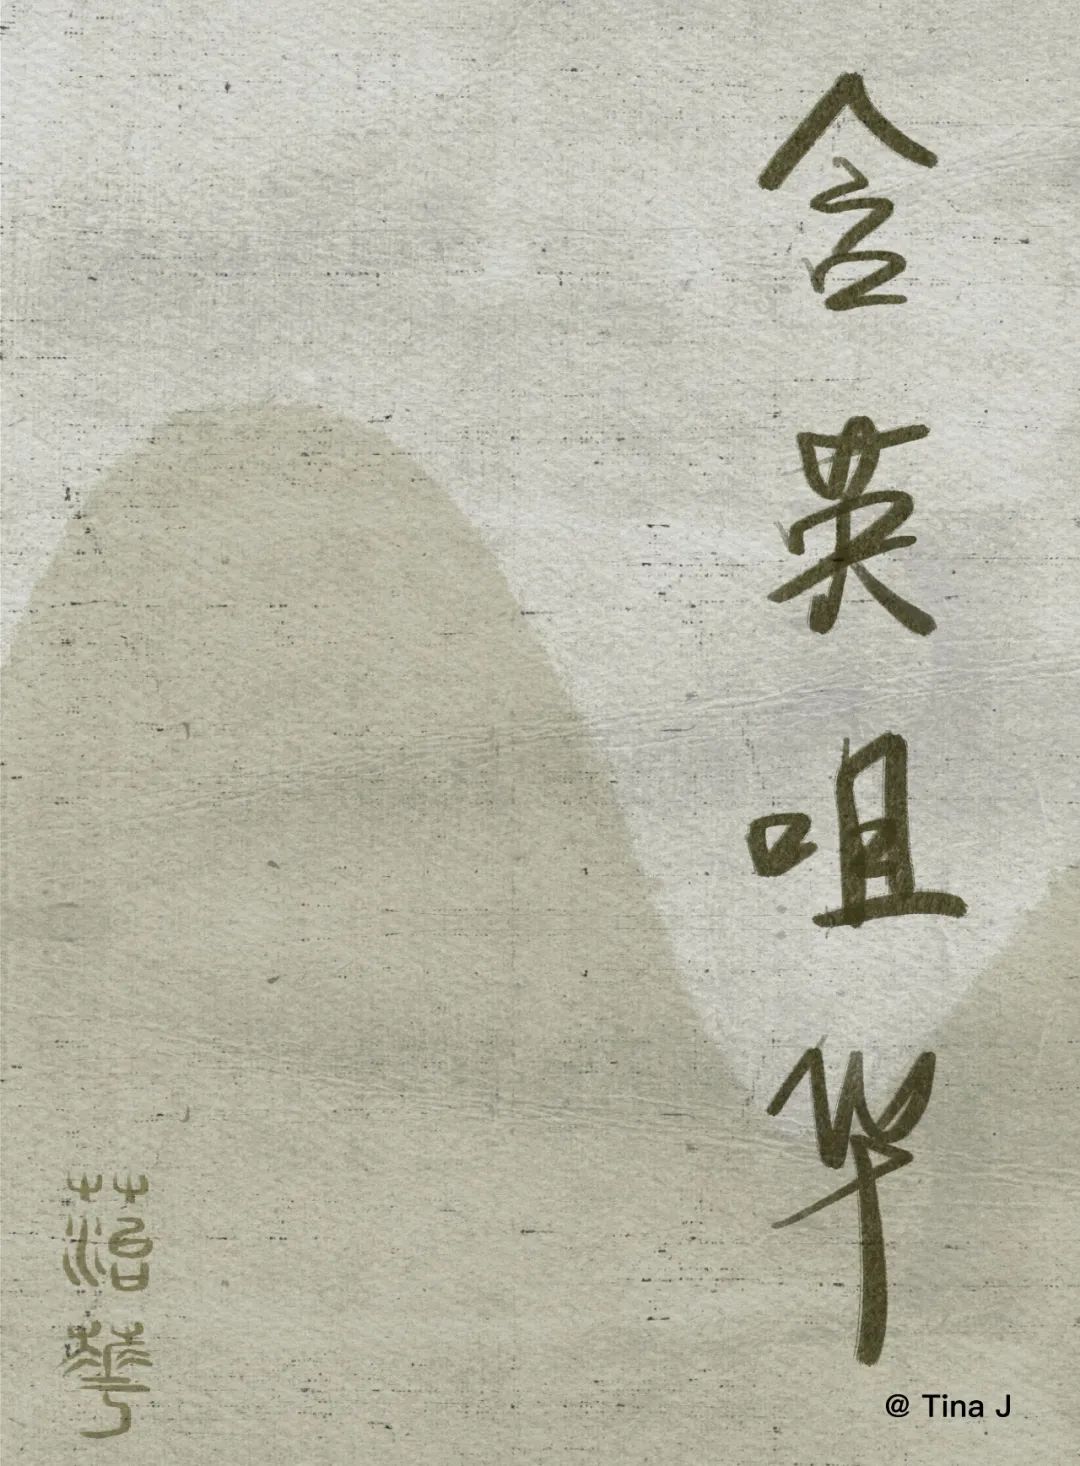 含英咀华
落華
@ Tina J